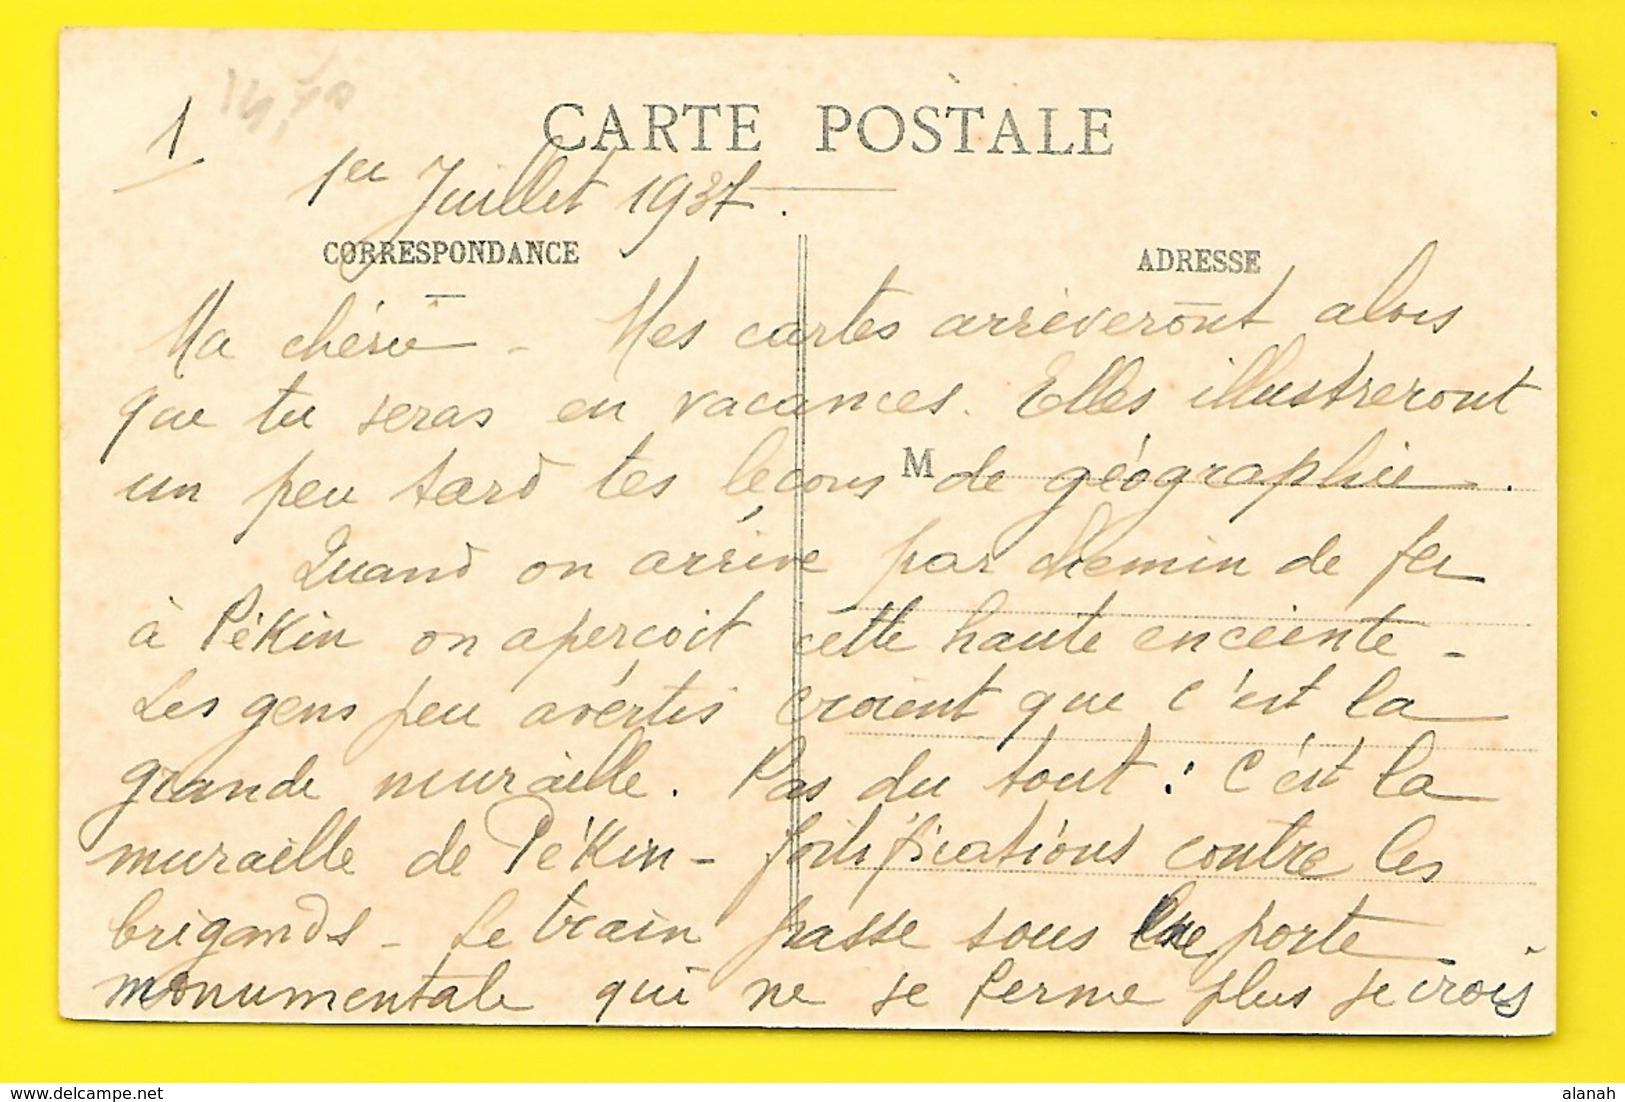 1
CARTE POSTALE
1er Juillet 1937.
CORRESPONDANCE
ADRESSE
Ma chérie - Mes cartes arriveront alors
que tu seras en vacances. Elles illustreront
un peu tard tes leçons de géographie.
M
Quand on arrive par chemin de fer
à Pékin on aperçoit cette haute enceinte -
Les gens peu avertis croient que c'est la
grande muraille. Pas du tout : c'est la
muraille de Pékin - fortifications contre les
brigands - Le train passe sous une porte
monumentale qui ne se ferme plus je crois
alanah